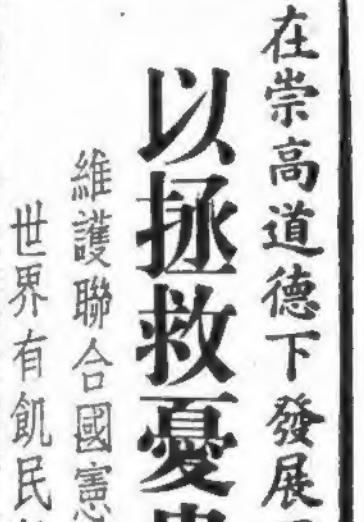 在崇高道德下發展
以拯救憂
維護聯合國憲
世界有飢民